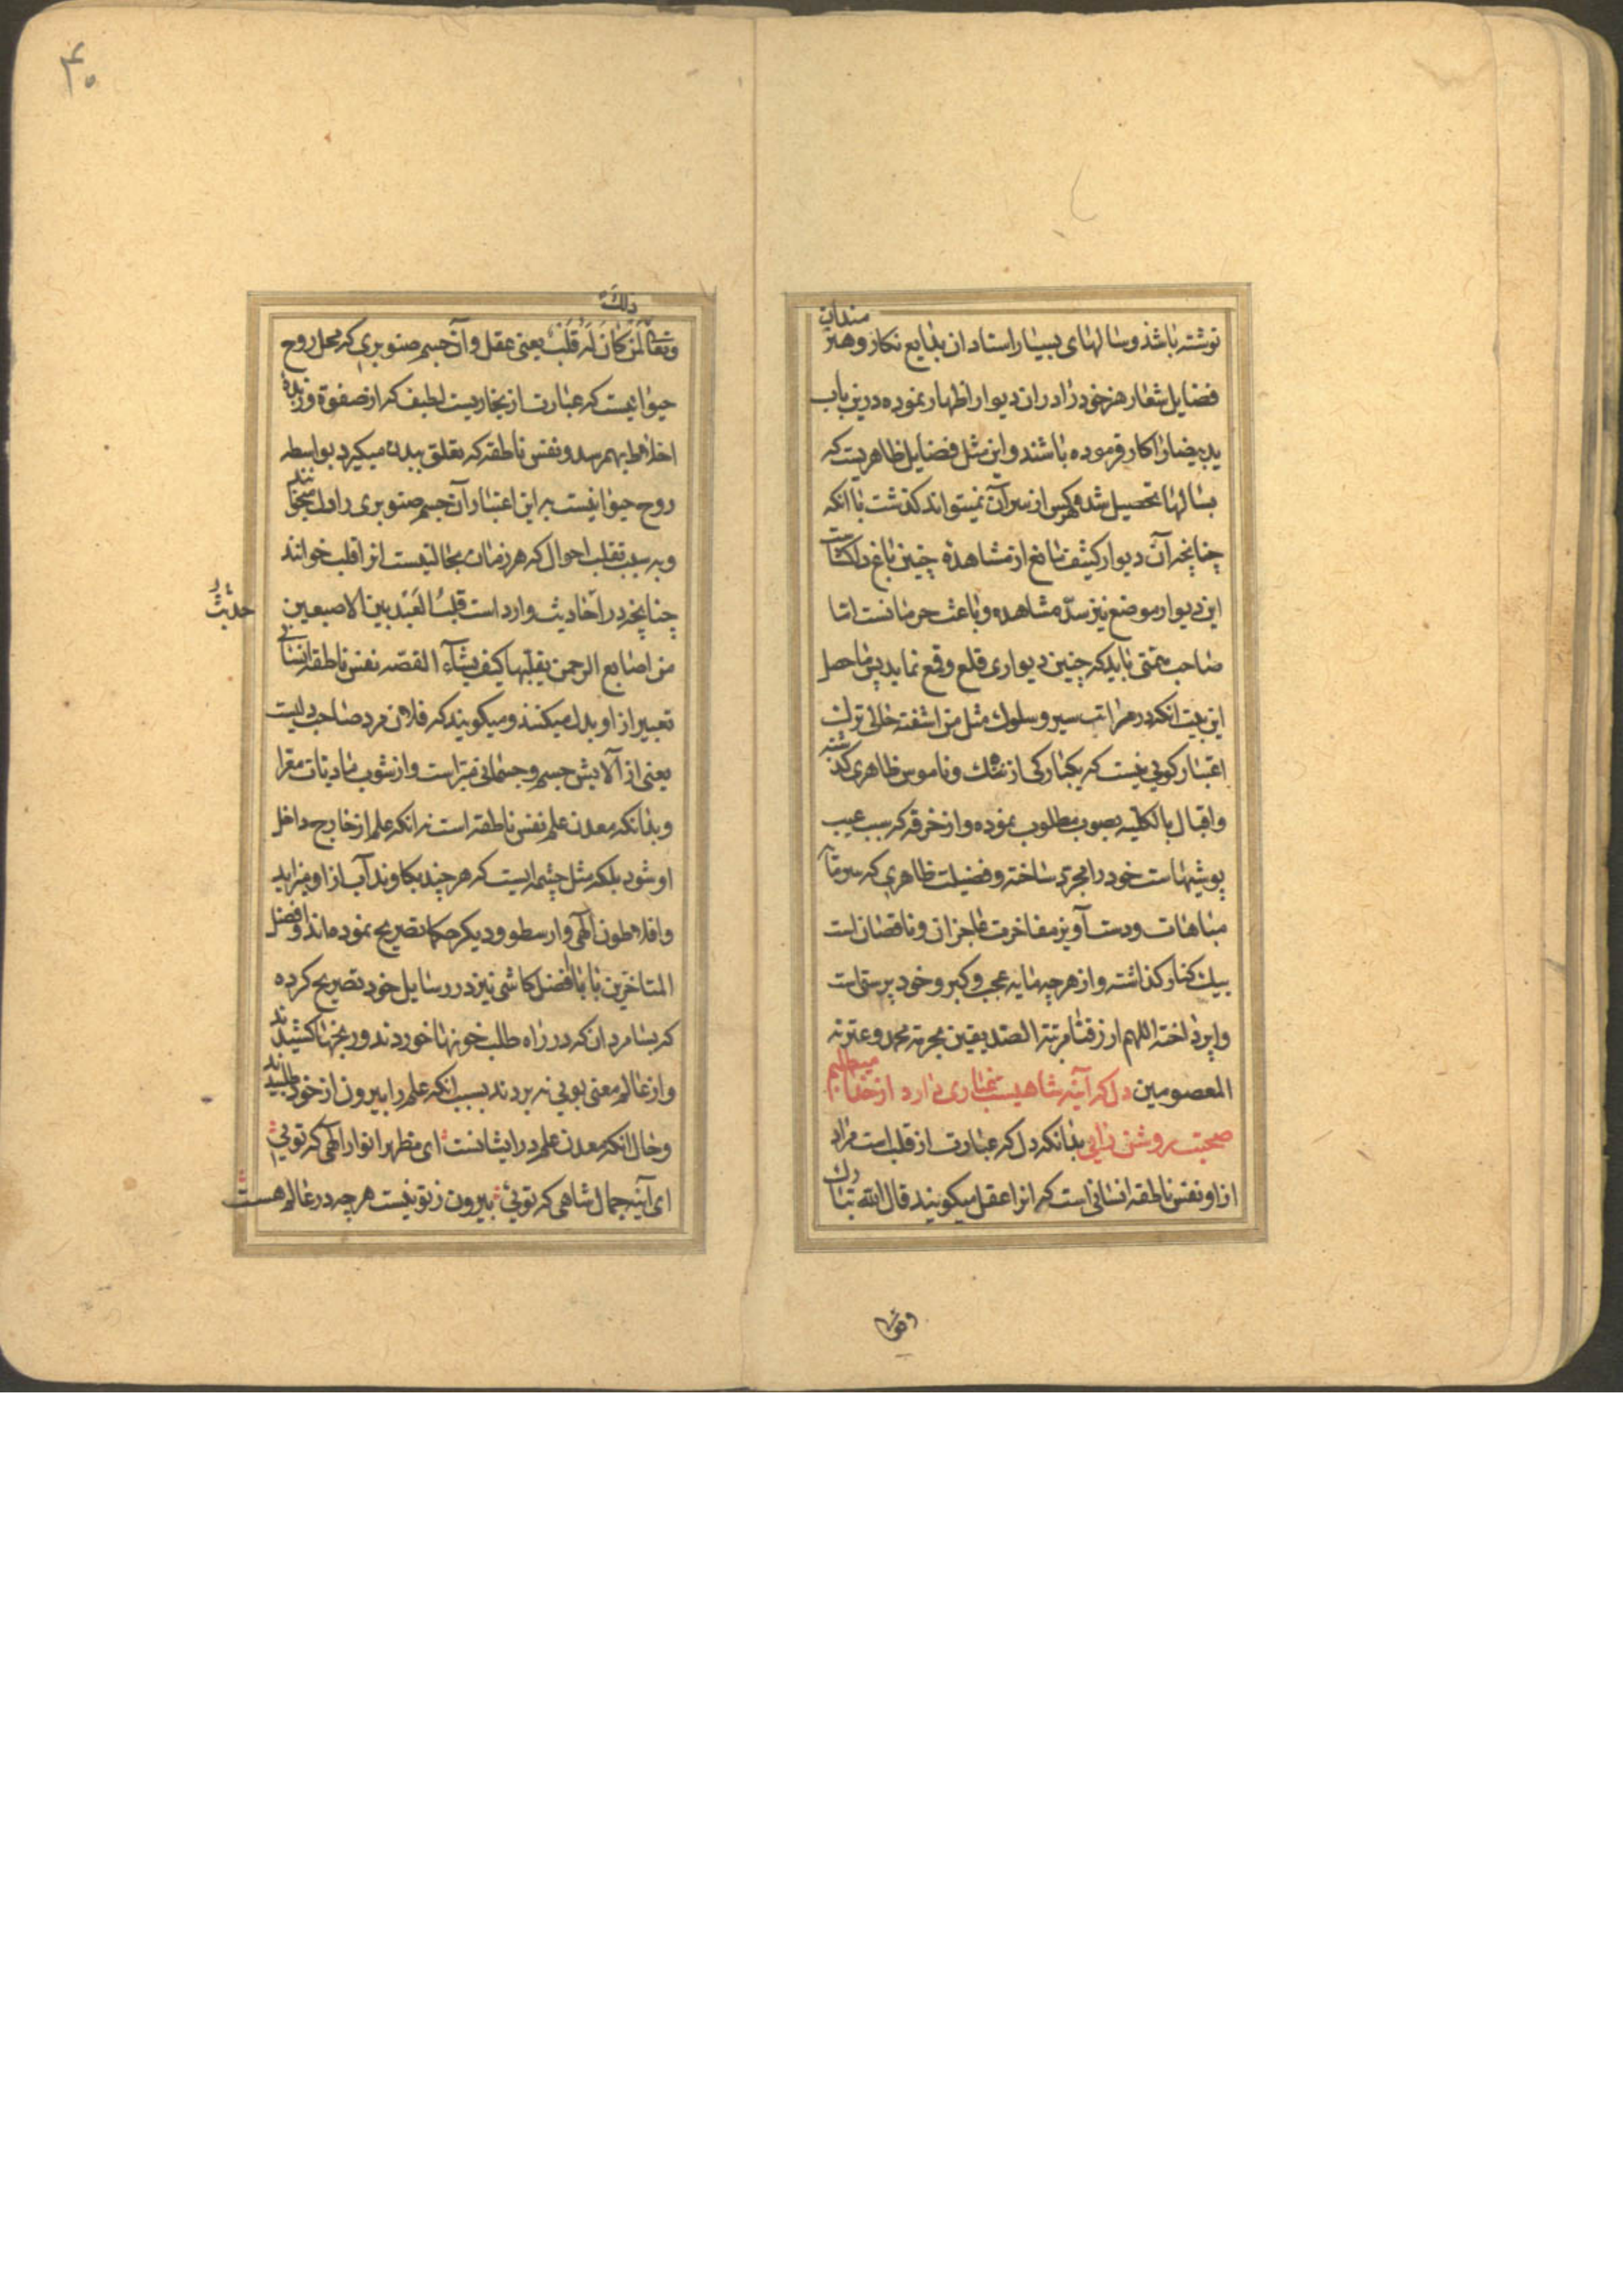 نوشته باشد و سالهای بسیار استادان بدایع نکار و هنرمندان
فضایل شعار هنر خود را در ان دیوار اظهار نموده درین باب
ید بیضا را کار فرموده باشند و این مثل فضایل ظاهریست که
بسالها تحصیل شده و هرکس از سر آن نمیتواند کذشت با انکه
چنانچه آن دیوار کثیف مانع از مشاهده چنین باغ دلکشاست
این دیوار موضع نیز سدّ مشاهده و باعث حرمانست اما
صاحب همتی باید که چنین دیواری قلع و قمع نماید پس ماحصل
این بیت انکه در مراتب سیر و سلوک مثل من اشفته حالی ترک
اعتبار کویی نیست که یکبارکی از ننک و ناموس ظاهری کذشته
و اقبال بالکلیه بصوب مطلوب نموده و از خرقه که سبب عیب
پوشیهاست خود را مجرد ساخته و فضیلت ظاهری که سرمایه
مباهات و دست آویز مفاخرت عاجزان و ناقصان است
بیک کنار کذاشته و از هرچه مایه عجب و کبر و خود پرستی است
واپرداخته اللهم ارزقنا مرتبة الصدیقین بحرمة محمد و عترته
المعصومین دل که آینه شاهیست غباری دارد از خدا میطلبم
صحبت روشن رایی بدانکه دل که عبارت از قلب است مراد
ازاو نفس ناطقه انسانی است که انرا عقل میکویند قال الله تبارک
وتعالی
۴۰
وتعالی لمن کان له قلب یعنی عقل و آن جسم صنوبری که محل روح
ذلک
حیوانیست که عبارت از بخاریست لطیف که از صفوة و زبدهٔ
اخلاط بهم رسد و نفس ناطقه که تعلق ببدن میکیرد بواسطه
روح حیوانیست به این اعتبار آن جسم صنوبری را دل میخوانند
و به سبب تقلب احوال که هر زمان بحالتیست انرا قلب خوانند
چنانچه در احادیث وارد است قلب العبد بین الاصبعین
حدیث
من اصابع الرحمن یقلبها کیف یشآء القصه نفس ناطقه انسانی
تعبیر از او بدل میکنند و میکویند که فلان مرد صاحب دلیست
یعنی از آلایش جسم و جسمانی مبرّاست و از شوب مادیات معرا
و بدانکه معدن علم نفس ناطقه است نه انکه علم از خارج داخل
او شود بلکه مثل چشمه ایست که هر چند بکاوند آب از او میزاید
و افلاطون الهی و ارسطو و دیکر حکما تصریح نموده اند و افضل
المتاخرین بابا افضل کاشی نیز در رسایل خود تصریح کرده
که بسا مردان که در راه طلب خونها خوردند و رنجها کشیدند
و از عالم معنی بویی نه بردند بسبب انکه علم را بیرون از خود طلبیدند
و حال انکه معدن علم در ایشانست ای مظهر انوار الهی که تویی
ای آینه جمال شاهی که تویی بیرون ز تو نیست هر چه در عالم هست